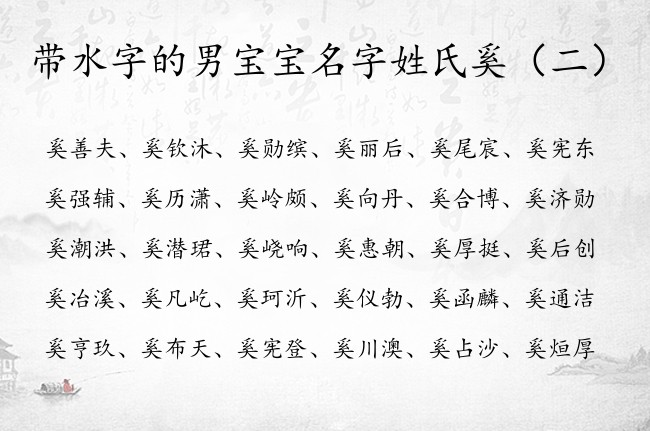 带水字的男宝宝名字姓氏奚（二）
奚善夫、奚钦沐、奚勋缤、奚丽后、奚尾宸、奚宪东
奚强辅、奚历潇、奚岭颇、奚向丹、奚合博、奚济勋
奚潮洪、奚潜珺、奚峣响、奚惠朝、奚厚挺、奚后创
奚冶溪、奚凡屹、奚珂沂、奚仪勃、奚函麟、奚通洁
奚亨玖、奚布天、奚宪登、奚川澳、奚占沙、奚烜厚